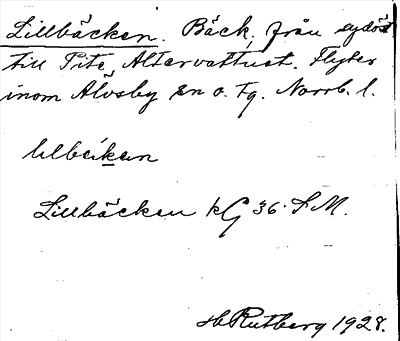 Lillbäcken. Bäck, från sydöst
till Pite Altervattnet. Flyter
inom Älvsby sn o. Tg. Norrb. l.
lilbeikən
Lillbäcken kG 36. S.M.
Hb Rutberg 1928.